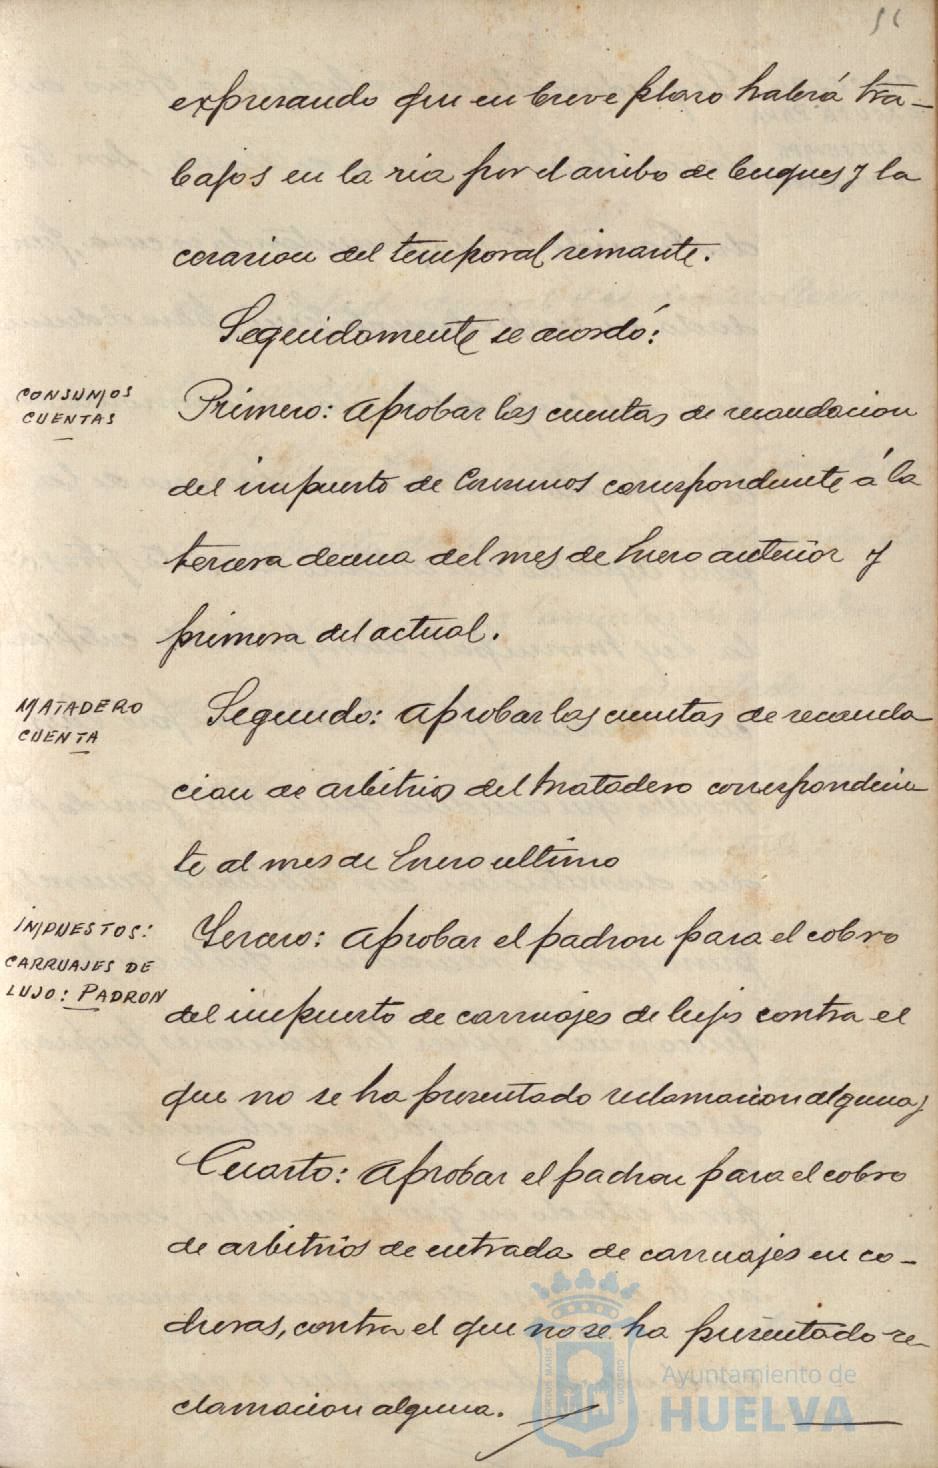 expresando que en breve plazo habrá tra-
bajos en la ria por el arribo de buques y la
cesacion del temporal reinante.
Seguidamente se acordó:
CONSUMOS
CUENTAS
Primero: Aprobar las cuentas de recaudacion
del impuesto de Consumos correspondiente á la
tercera decena del mes de Enero anterior y
primera del actual.
MATADERO
CUENTA
Segundo: Aprobar las cuentas de recauda
cion de arbitrios del Matadero correspondien
te al mes de Enero ultimo
IMPUESTOS:
CARRUAJES DE
LUJO: PADRON
Tercero: Aprobar el padron para el cobro
del impuesto de carruajes de lujo contra el
que no se ha presentado reclamacion alguna y
Cuarto: Aprobar el padron para el cobro
de arbitrios de entrada de carruajes en co-
cheras, contra el que no se ha presentado re-
clamacion alguna.
Ayuntamiento de
HUELVA